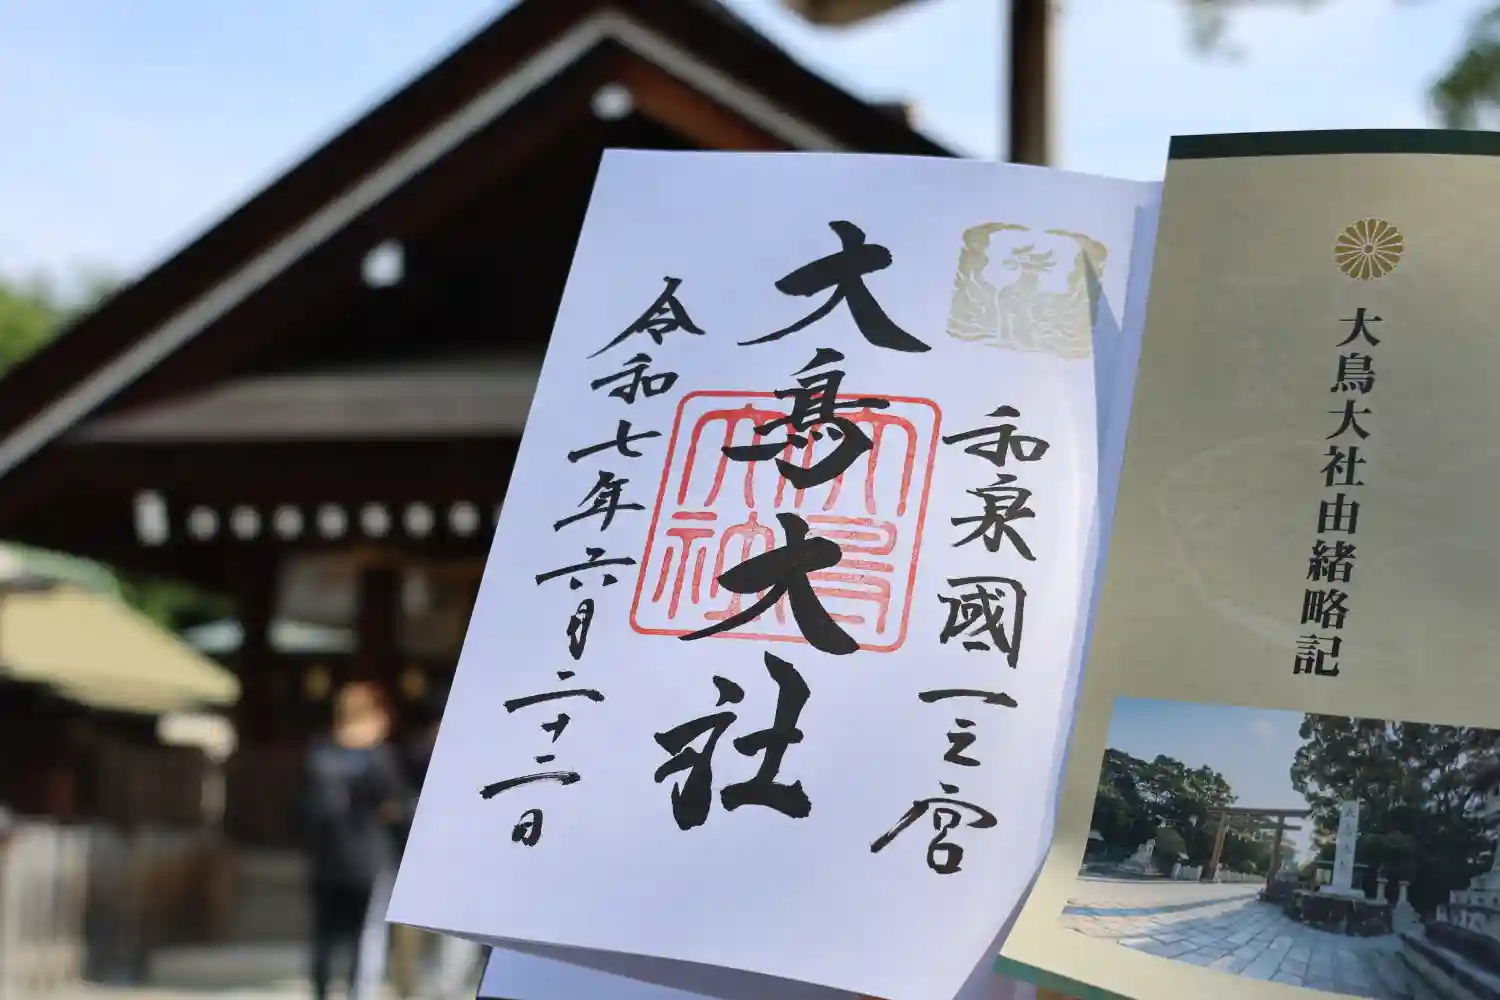 和泉國一之宮
大鳥大社
大鳥大社
令和七年六月二十二日
大鳥大社由緒略記